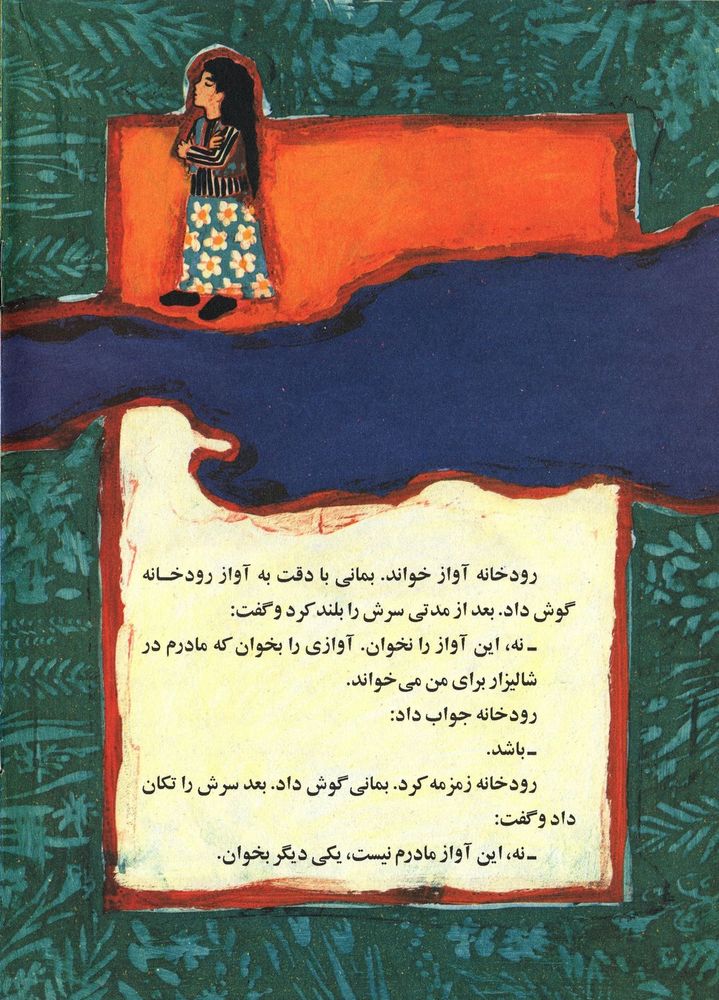 رودخانه آواز خواند. بمانی با دقت به آواز رودخـانه
گوش داد. بعد از مدتی سرش را بلند کرد و گفت:
ـ نه، این آواز را نخوان. آوازی را بخوان که مادرم در
شالیزار برای من می‌خواند.
رودخانه جواب داد:
ـ باشد.
رودخانه زمزمه کرد. بمانی گوش داد. بعد سرش را تکان
داد و گفت:
ـ نه، این آواز مادرم نیست، یکی دیگر بخوان.